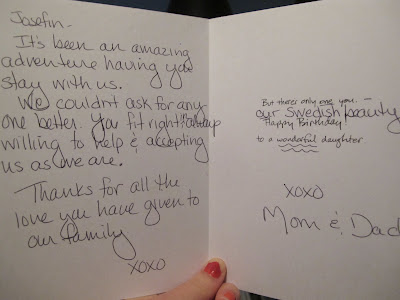 Josefin-
It's been an amazing
adventure having you
stay with us.
We couldn't ask for any-
one better. You fit right in! always
willing to help & accepting
us as we are.
Thanks for all the
love you have given to
our family
xoxo
But there's only one you. —
our Swedish beauty
Happy Birthday!
to a wonderful daughter
xoxo
Mom & Dad